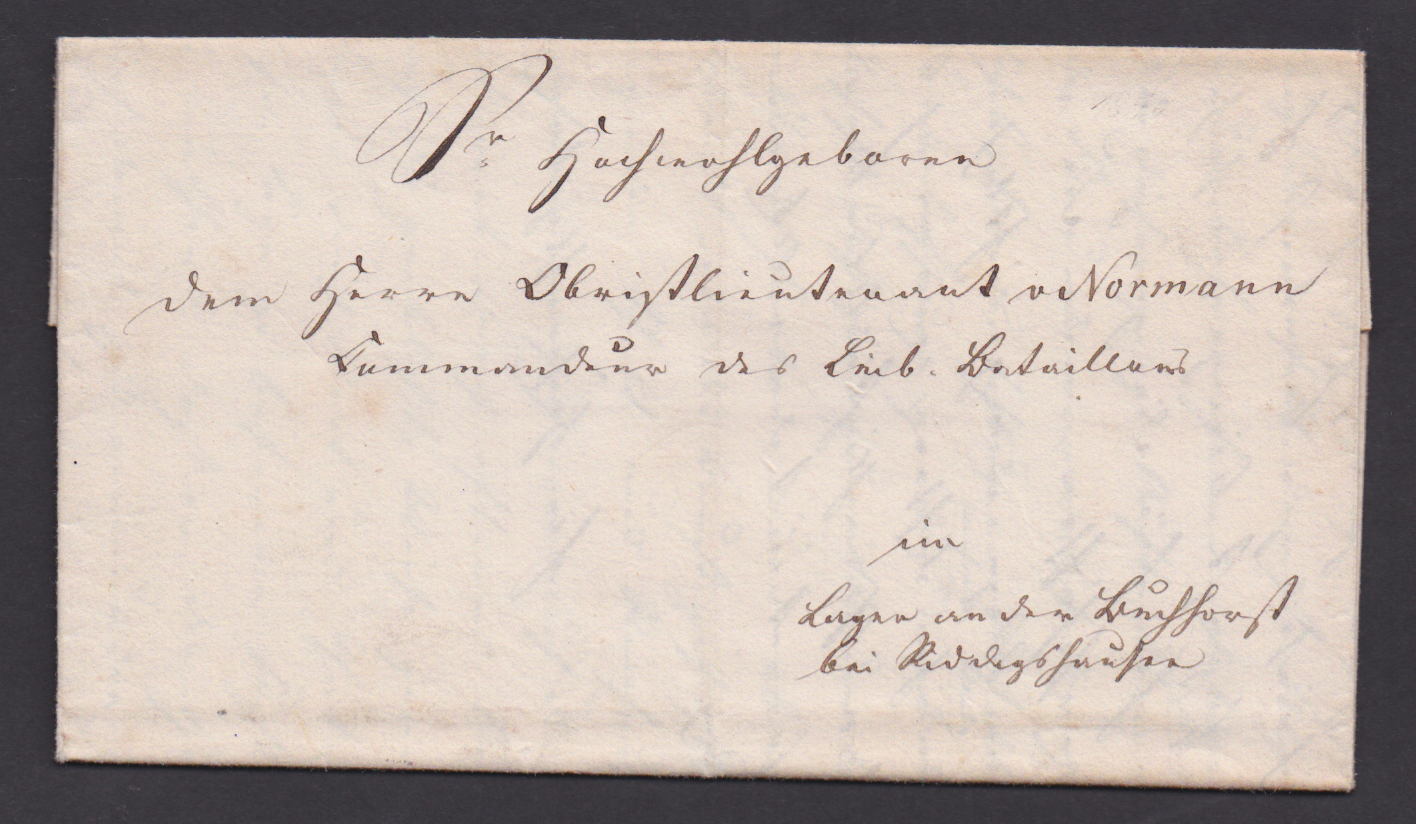 Sr. Hochwohlgeboren
dem Herrn Obristlieutenant v Normann
Commandeur des Leib-Bataillons
im
Lager an der Buchhorst
bei Riddagshausen